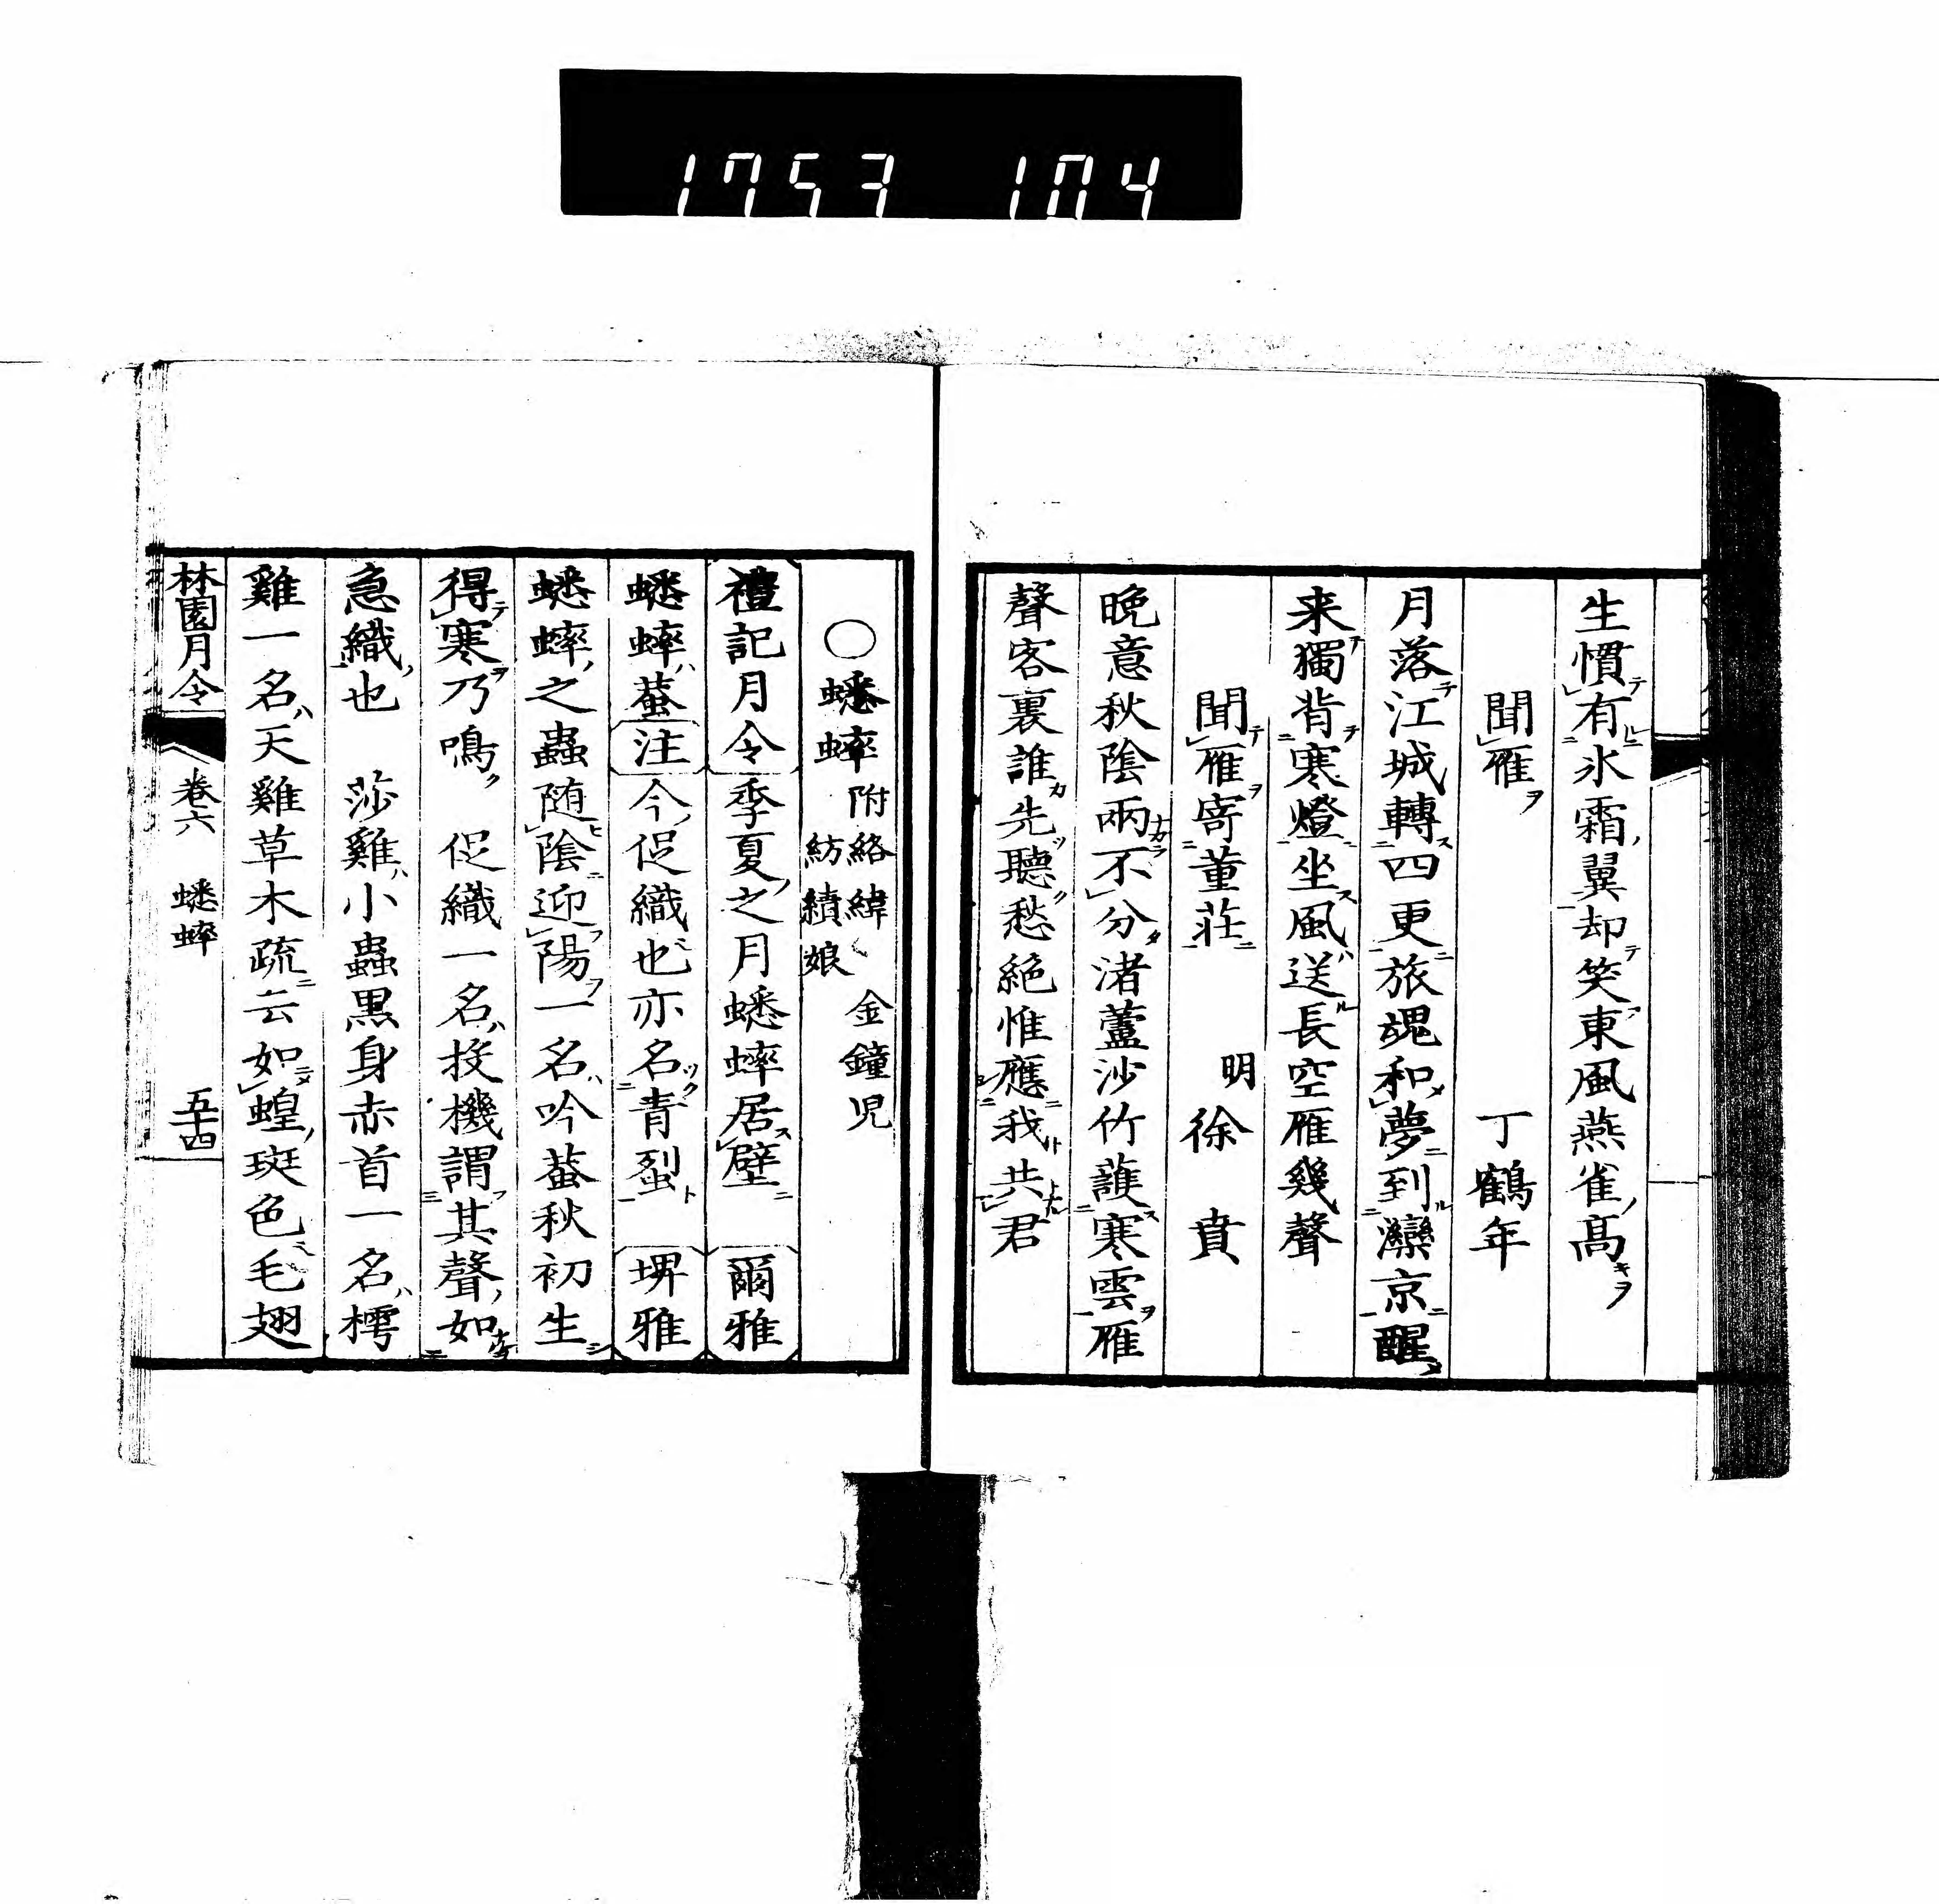 1753 104
生慣有氷霜翼却笑東風燕雀高
聞雁 丁鶴年
月落江城轉四更旅魂和夢到灤京醒
来獨背寒燈坐風送長空雁幾聲
聞雁寄董莊 明徐賁
晩意秋陰兩不分渚蘆沙竹護寒雲雁
聲客裏誰先聽愁絶惟應我共君
○蟋蟀 附絡緯 金鐘児
紡績娘
禮記月令季夏之月蟋蟀居壁 爾雅
蟋蟀蛬注今促織也亦名青𧊿 埤雅
蟋蟀之蟲随陰迎陽一名吟蛬秋初生
得寒乃鳴 促織一名投機謂其聲如
急織也 莎雞小蟲黒身赤首一名樗
雞一名天雞草木疏云如蝗斑色毛翅
林園月令 卷六 蟋蟀 五十四